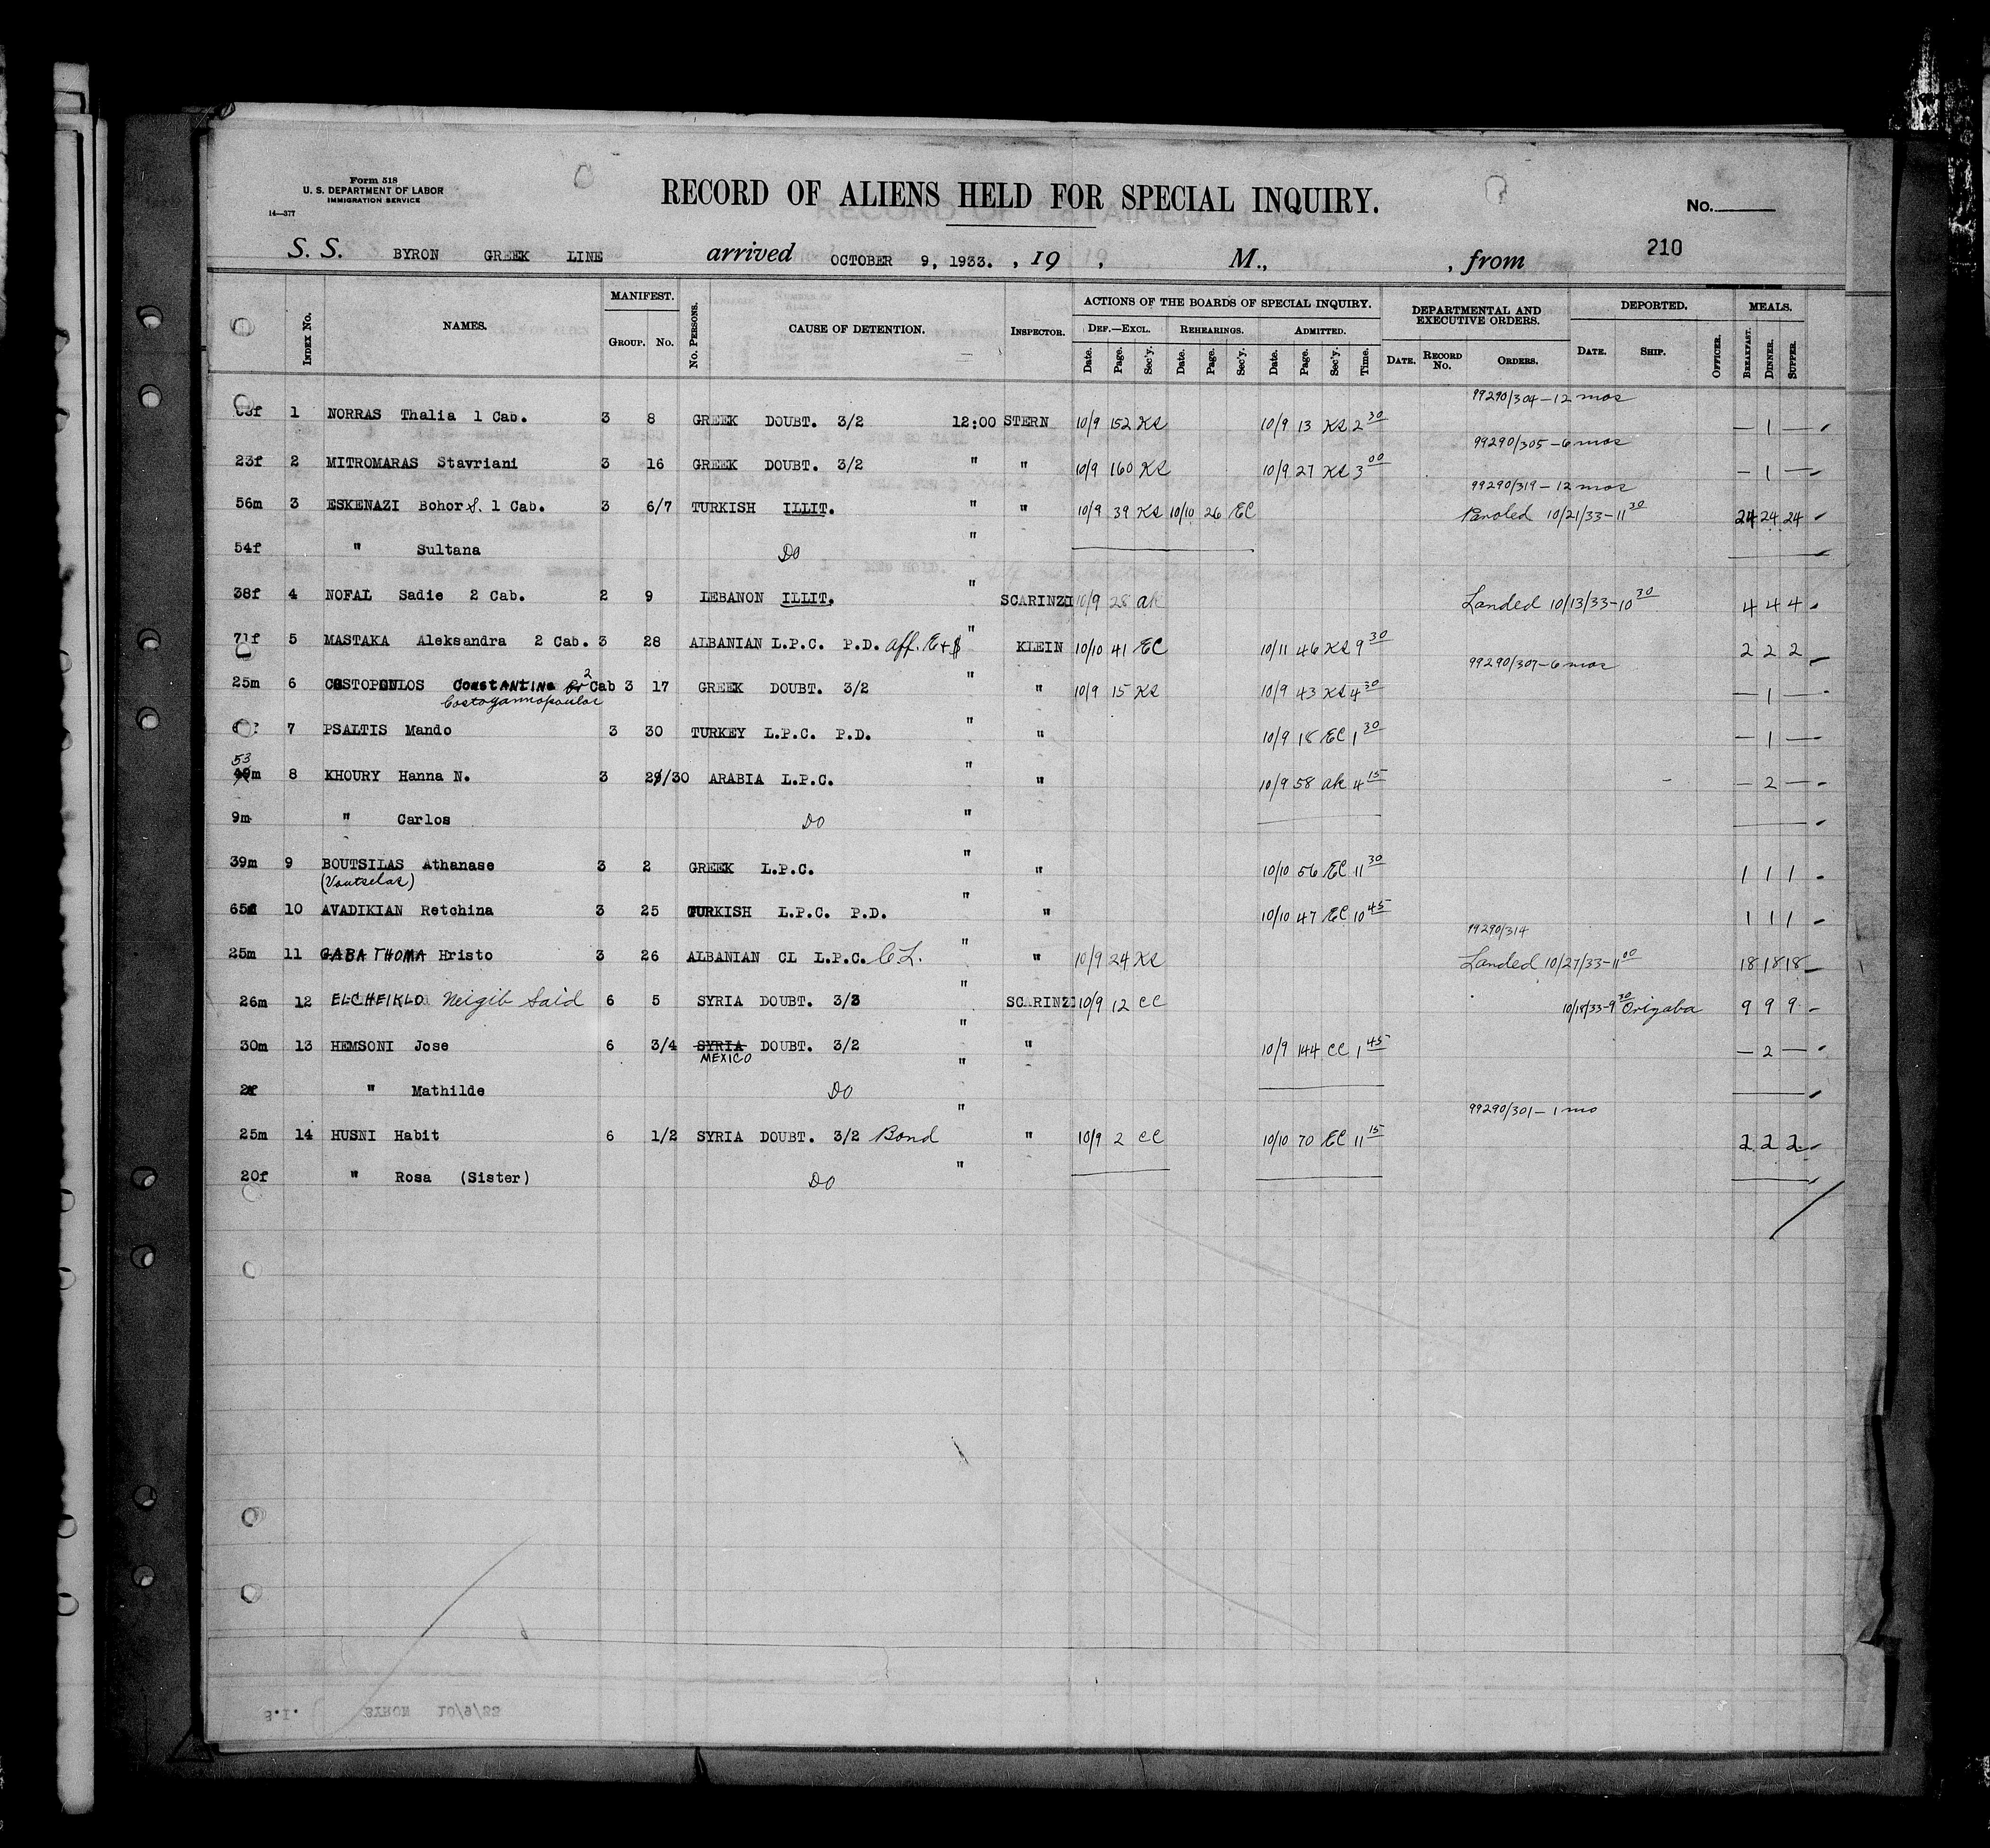 Form 518
U. S. DEPARTMENT OF LABOR
IMMIGRATION SERVICE
14—377
RECORD OF ALIENS HELD FOR SPECIAL INQUIRY.
No.
S. S. BYRON GREEK LINE arrived OCTOBER 9, 1933. , 19 , M., , from 210
INDEX No. NAMES. MANIFEST. GROUP. No. No. PERSONS. CAUSE OF DETENTION. INSPECTOR. ACTIONS OF THE BOARDS OF SPECIAL INQUIRY. DEF.—EXCL. Date. Page. Sec'y. REHEARINGS. Date. Page. Sec'y. ADMITTED. Date. Page. Sec'y. Time. DEPARTMENTAL AND EXECUTIVE ORDERS. DATE. RECORD No. ORDERS. DEPORTED. DATE. SHIP. OFFICER. MEALS. BREAKFAST. DINNER. SUPPER.
99290/304 – 12 mos
1 NORRAS Thalia 1 Cab. 3 8 GREEK DOUBT. 3/2 12:00 STERN 10/9 152 KS 10/9 13 KS 2 30 — 1 —
99290/305 – 6 mos
23f 2 MITROMARAS Stavriani 3 16 GREEK DOUBT. 3/2 " " 10/9 160 KS 10/9 27 KS 3 00 — 1 —
99290/319 – 12 mos
56m 3 ESKENAZI Bohor S. 1 Cab. 3 6/7 TURKISH ILLIT. " " 10/9 39 KS 10/10 26 EC Paroled 10/21/33 – 11 30 24 24 24
54f " Sultana DO "
38f 4 NOFAL Sadie 2 Cab. 2 9 LEBANON ILLIT. " SCARINZI 10/9 28 ak Landed 10/13/33 – 10 30 4 4 4
71f 5 MASTAKA Aleksandra 2 Cab. 3 28 ALBANIAN L.P.C. P.D. aff. E + $ " KLEIN 10/10 41 EC 10/11 46 KS 9 30 2 2 2
99290/307 – 6 mos
25m 6 COSTOPOULOS CONSTANTINO 2 Cab 3 17 GREEK DOUBT. 3/2 " " 10/9 15 KS 10/9 43 KS 4 30 — 1 —
Costoyannopoulos
7 PSALTIS Mando 3 30 TURKEY L.P.C. P.D. " " 10/9 18 EC 1 30 — 1 —
53
49m 8 KHOURY Hanna N. 3 29/30 ARABIA L.P.C. " " 10/9 58 ak 4 15 — 2 —
9m " Carlos DO "
39m 9 BOUTSILAS Athanase 3 2 GREEK L.P.C. " " 10/10 56 EC 11 30 1 1 1
(Voutselas)
65f 10 AVADIKIAN Retchina 3 25 TURKISH L.P.C. P.D. " " 10/10 47 EC 10 45 1 1 1
99290/314
25m 11 GABA THOMA Hristo 3 26 ALBANIAN CL L.P.C. C.L. " " 10/9 24 KS Landed 10/27/33 – 11 00 18 18 18
26m 12 ELCHEIKLO Neigib Said 6 5 SYRIA DOUBT. 3/3 " SCARINZI 10/9 12 CC 10/18/33 – 9 30 Orizaba 9 9 9
30m 13 HEMSONI Jose 6 3/4 SYRIA DOUBT. 3/2 " " 10/9 144 CC 1 45 — 2 —
MEXICO
2f " Mathilde DO "
99290/301 – 1 mo
25m 14 HUSNI Habit 6 1/2 SYRIA DOUBT. 3/2 Bond " " 10/9 2 CC 10/10 70 EC 11 15 2 2 2
20f " Rosa (Sister) DO "